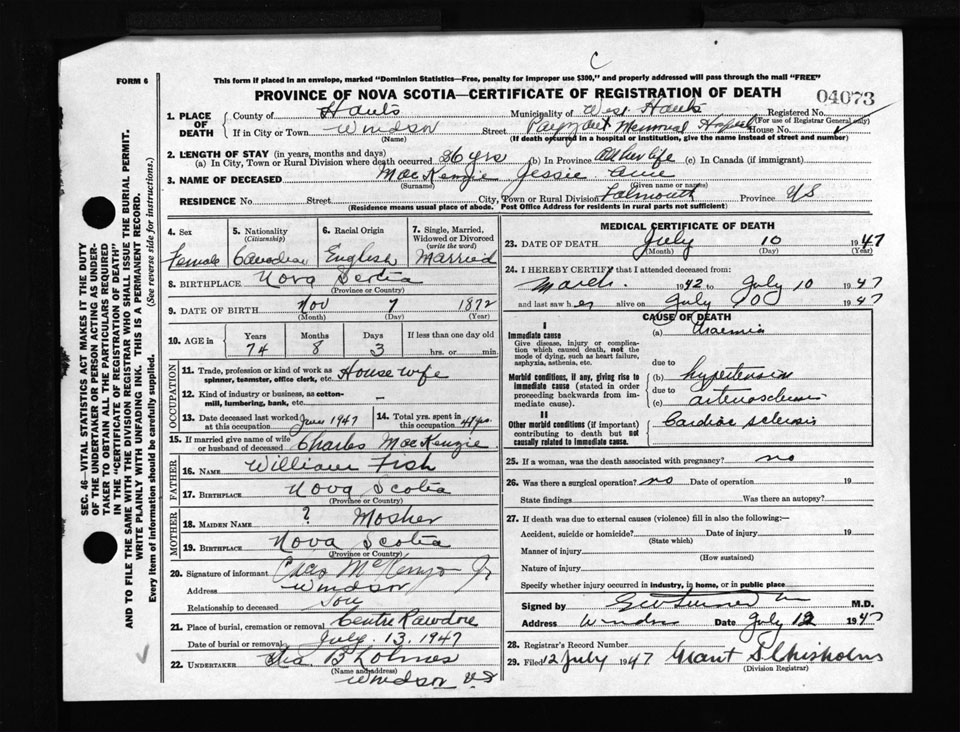 C
FORM 6
This form if placed in an envelope, marked "Dominion Statistics—Free, penalty for improper use $300," and properly addressed will pass through the mail "FREE"
PROVINCE OF NOVA SCOTIA—CERTIFICATE OF REGISTRATION OF DEATH
04073
1. PLACE OF DEATH
County of Hants Municipality of West Hants Registered No.
(For use of Registrar General only)
If in City or Town Windsor Street Payzant Memorial House No.
(Name) (If death occurred in a hospital or institution, give the name instead of street and number)
2. LENGTH OF STAY (in years, months and days)
(a) In City, Town or Rural Division where death occurred 36 yrs (b) In Province All her life (c) In Canada (if immigrant)
3. NAME OF DECEASED MacKenzie Jessie
(Surname) (Given name or names)
RESIDENCE No. Street City, Town or Rural Division Falmouth Province NS
(Residence means usual place of abode. Post Office Address for residents in rural parts not sufficient)
SEC. 46—VITAL STATISTICS ACT MAKES IT THE DUTY
OF THE UNDERTAKER OR PERSON ACTING AS UNDER-
TAKER TO OBTAIN ALL THE PARTICULARS REQUIRED
IN THE "CERTIFICATE OF REGISTRATION OF DEATH"
AND TO FILE THE SAME WITH THE DIVISION REGISTRAR WHO SHALL ISSUE THE BURIAL PERMIT.
WRITE PLAINLY WITH UNFADING INK. THIS IS A PERMANENT RECORD.
Every item of information should be carefully supplied. (See reverse side for instructions.)
4. Sex 5. Nationality 6. Racial Origin 7. Single, Married,
(Citizenship) Widowed or Divorced
(write the word)
Female Canadian English Married
8. BIRTHPLACE Nova Scotia
(Province or Country)
9. DATE OF BIRTH Nov 7 1872
(Month) (Day) (Year)
10. AGE in Years Months Days If less than one day old
74 8 3 hrs. or min.
OCCUPATION
11. Trade, profession or kind of work as House wife
spinner, teamster, office clerk, etc.
12. Kind of industry or business, as cotton-
mill, lumbering, bank, etc. –
13. Date deceased last worked at this occupation June 1947
14. Total yrs. spent in this occupation
15. If married give name of wife or husband of deceased Charles MacKenzie
FATHER
16. NAME William Fish
17. BIRTHPLACE Nova Scotia
(Province or Country)
MOTHER
18. MAIDEN NAME ? Mosher
19. BIRTHPLACE Nova Scotia
(Province or Country)
20. Signature of informant Jr
Address Windsor
Relationship to deceased Son
21. Place of burial, cremation or removal Centre Rawdon
Date of burial or removal July 13, 1947
22. UNDERTAKER
(Name and address)
Windsor N.S
MEDICAL CERTIFICATE OF DEATH
23. DATE OF DEATH July 10 1947
(Month) (Day) (Year)
24. I HEREBY CERTIFY that I attended deceased from:
March 1942 to July 10 1947
and last saw her alive on July 10 1947
CAUSE OF DEATH
I
Immediate cause (a) Uraemia
Give disease, injury or complica-
tion which caused death, not the
mode of dying, such as heart failure,
asphyxia, asthenia, etc. due to
Morbid conditions, if any, giving rise to (b) hypertension
immediate cause (stated in order due to
proceeding backwards from im- (c) arteriosclerosis
mediate cause).
II
Other morbid conditions (if important) Cardiac sclerosis
contributing to death but not
causally related to immediate cause.
25. If a woman, was the death associated with pregnancy? no
26. Was there a surgical operation? no Date of operation 19
State findings Was there an autopsy?
27. If death was due to external causes (violence) fill in also the following:—
Accident, suicide or homicide? Date of injury 19
(State which)
Manner of injury
(How sustained)
Nature of injury
Specify whether injury occurred in industry, in home, or in public place
Signed by M.D.
Address Windsor Date July 12 1947
28. Registrar's Record Number
29. Filed 12 July 1947 Grant S Chisholm
(Division Registrar)